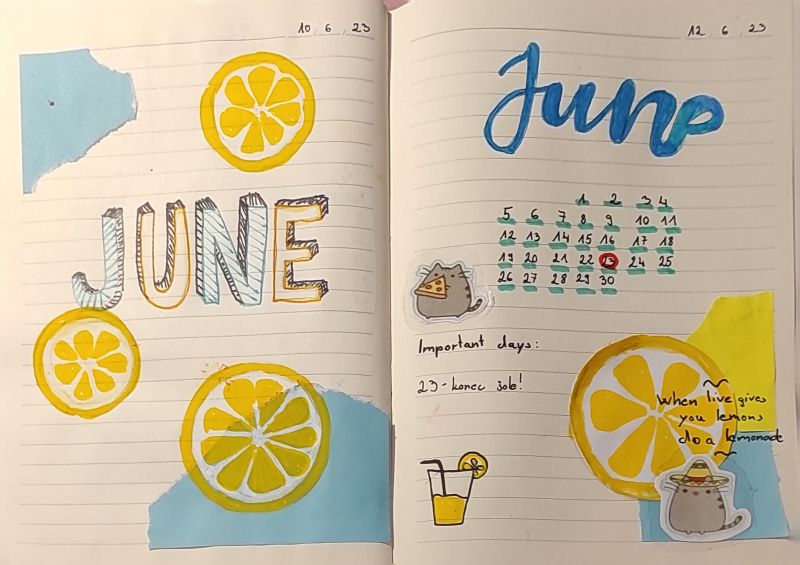 10. 6. 23
JUNE
12. 6. 23
June
1 2 3 4
5 6 7 8 9 10 11
12 13 14 15 16 17 18
19 20 21 22 23 24 25
26 27 28 29 30
Important days:
23 - konec šole!
When live gives
you lemons
do a lemonade